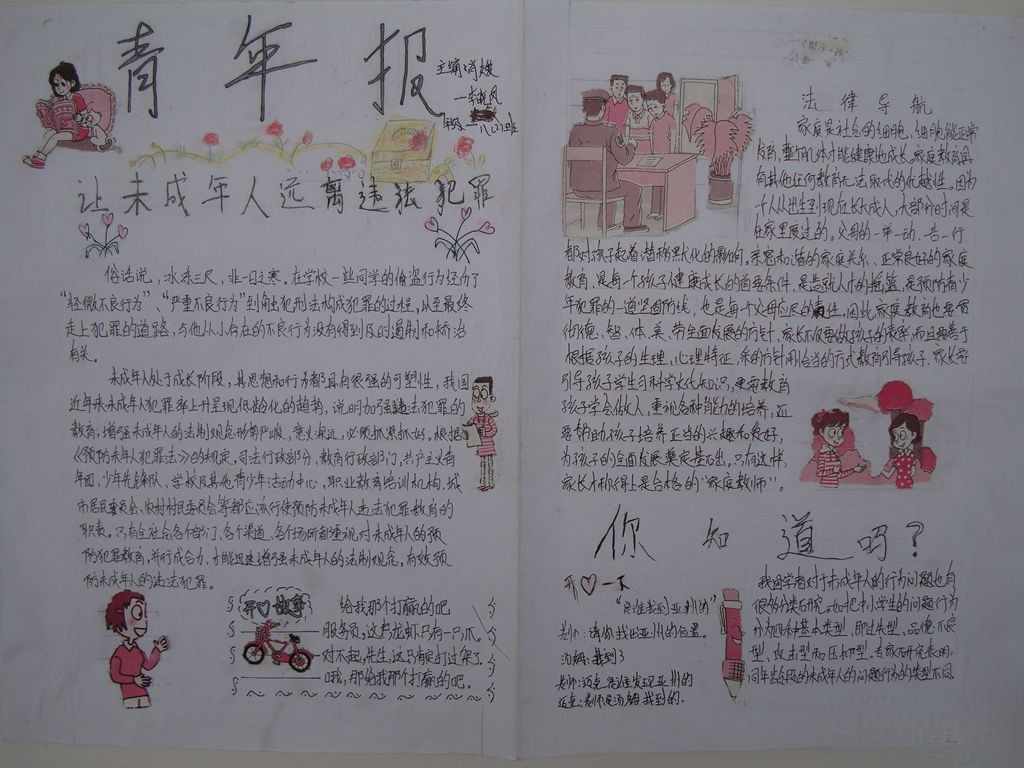 青年报
主编:肖焕
李晓凤
年级:八(四)班
让未成年人远离违法犯罪
俗话说,冰冻三尺,非一日之寒。在学校一些同学的偷盗行为经历了
"轻微不良行为"、"严重不良行为"到触犯刑法构成犯罪的过程,以至最终
走上犯罪的道路,与他从小存在的不良行为没有得到及时遏制和矫治
有关。
未成年人处于成长阶段,其思想和行为都具有很强的可塑性,我国
近年来未成年人犯罪率上升呈现低龄化的趋势,说明加强违法犯罪的
教育,增强未成年人的法制观念形势严峻,意义深远,必须抓紧抓好。根据
《预防未成年人犯罪法》的规定,司法行政部分、教育行政部门,共产主义青
年团,少年先锋队、学校及其他青少年活动中心,职业教育培训机构,城
市居民委员会、农村村民委员会等都应该行使预防未成年人违法犯罪教育的
职责。只有全社会各个部门、各个渠道、各个场所都重视对未成年人的预
防犯罪教育,并行成合力,才能迅速增强未成年人的法制观念,有效预
防未成年人的违法犯罪。
开心故事
给我那个打赢的吧
服务员,这只龙虾只有一只爪。
对不起,先生,这只龙虾打过架了
哦,那给我那个打赢的吧。
法律导航
家庭是社会的细胞,细胞能正常
发育,整个机体才能健康地成长,家庭教育具
有其他任何教育无法取代的优越性。因为
个人从出生到现在长大成人,大部分时间是
在家里度过的。父母的一举一动、一言一行
都对孩子起着潜移默化的影响。亲密和谐的家庭关系、正常良好的家庭
教育,是每一个孩子健康成长的首要条件,是造就人才的摇篮,是预防青少
年犯罪的一道坚固防线,也是每个父母应尽的责任。因此,家庭教育也要贯
彻德、智、体、美、劳全面发展的方针,家长不仅要做孩子的表率,而且要善于
根据孩子的生理,心理特征,来的方针用恰当的方式教育引导孩子。家长要
引导孩子学生习科学文化知识,更要教育
孩子学会做人,重视各种能力的培养,还
要帮助孩子培养正当的兴趣和爱好,
为孩子的全面发展奠定基础,只有这样,
家长才称得上是合格的"家庭教师"。
你知道吗?
开心一下
"是谁找到亚洲的"
老师:请你找出亚洲的位置。
汤姆:找到了
老师:迈克,是谁发现亚洲的
迈克:老师是汤姆找到的.
我国学者对于未成年人的行为问题也有
很多分类研究。如把中小学生的问题行为
分为四种基本类型,即过失型,品德不良
型,攻击型和压抑型。专家研究表明,
同年龄段的未成年人的问题行为的类型不同.